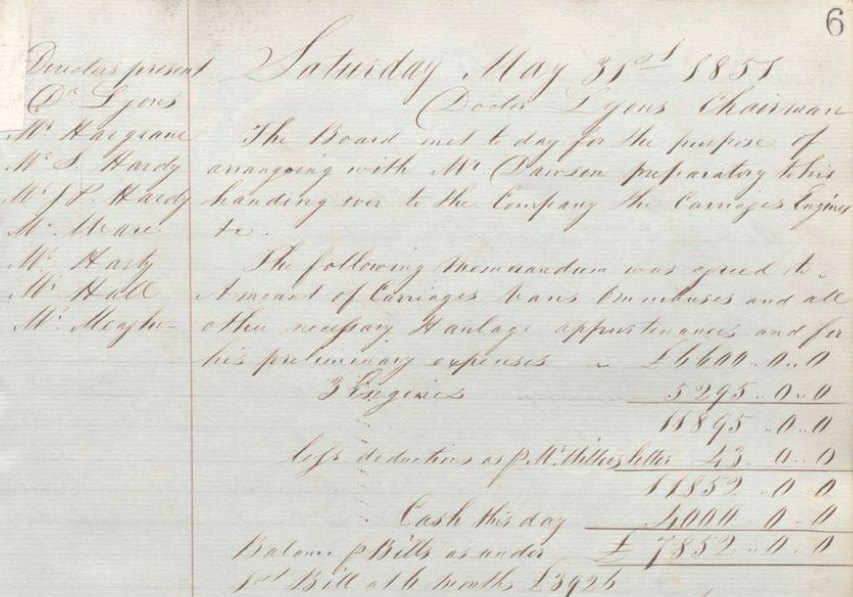 6
Saturday May 31st 1851
Directors present
Dr Lyons
Doctor Lyons Chairman
Mr Hargrave
The Board met to day for the purpose of
Mr S. Hardy
arranging with Mr Dawson preparatory to his
Mr J P. Hardy
handing over to the Company the Carriages Engines
Mr Ware
&c.
Mr Hasty
The following Memorandum was agreed to
Mr Hall
Amount of Carriages Vans Omnibuses and all
Mr Meagher
other necessary Haulage appurtenances and for
his preliminary expenses £6600 .. 0 .. 0
3 Engines 5295 .. 0 .. 0
11895 .. 0 .. 0
less deductions as p Mr letter 43 .. 0 .. 0
11852 .. 0 .. 0
Cash this day 4000 .. 0 .. 0
Balance p Bills as under £ 7852 .. 0 .. 0
1st Bill at 6 months £3926